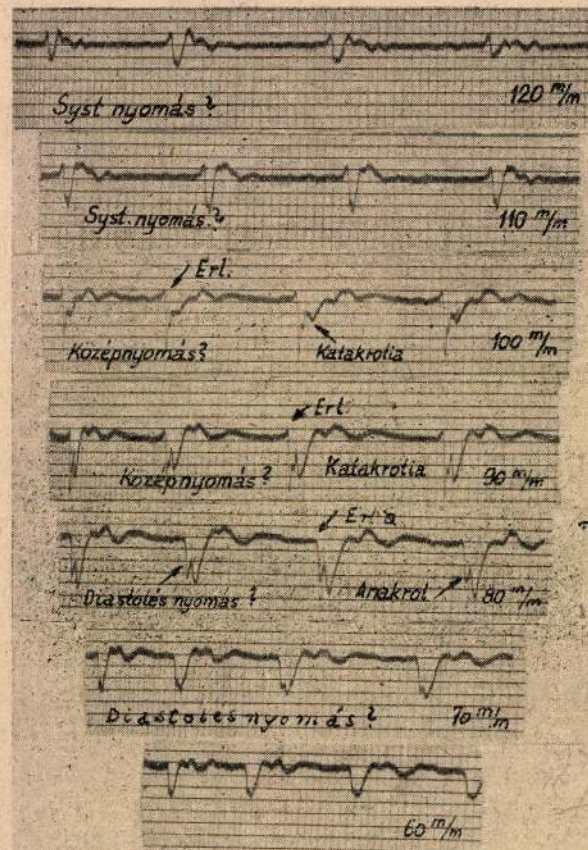 Syst nyomás? 120 m/m
Syst. nyomás? 110 m/m
Erl.
Középnyomás? Katakrotia 100 m/m
Erl.
Középnyomás? Katakrotia 90 m/m
Erl a
Diastolés nyomás? Anakrot 80 m/m
Diastolés nyomás? 70 m/m
60 m/m